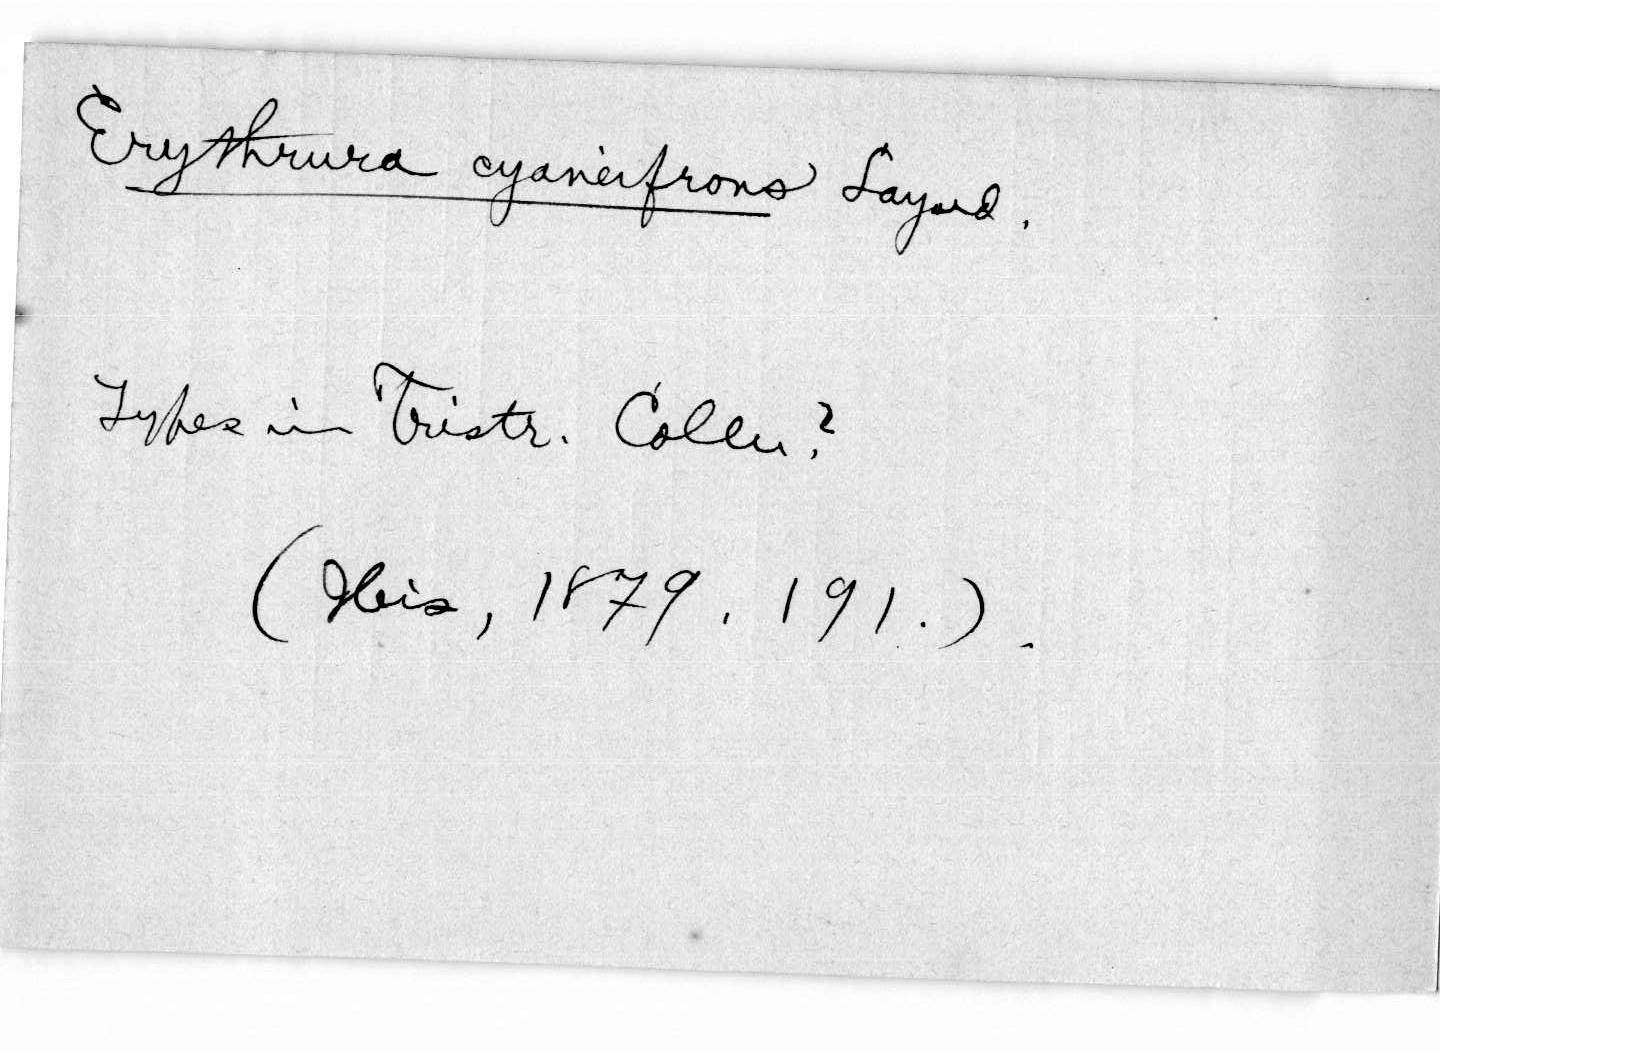 Erythrura cyaneifrons Layard.
Types in Tristr. Colln?
(Ibis, 1879. 191.).